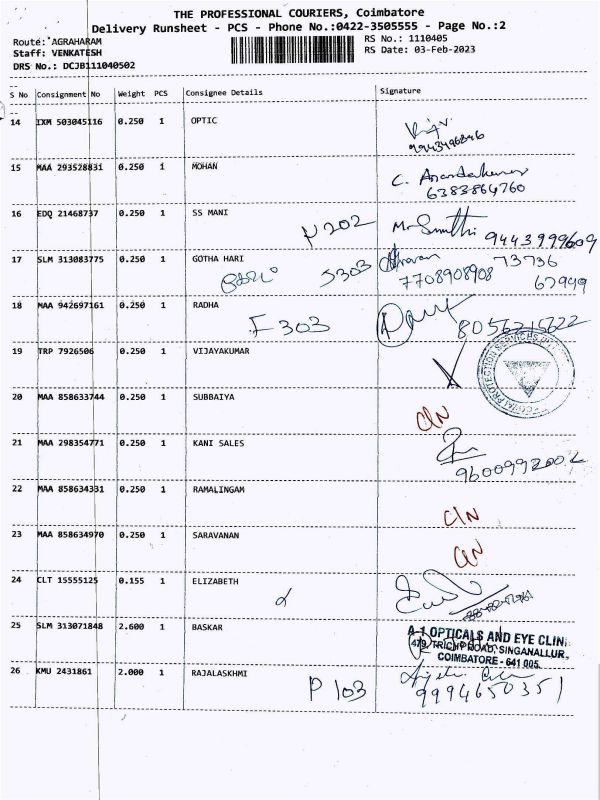 THE PROFESSIONAL COURIERS, Coimbatore
Delivery Runsheet - PCS - Phone No.:0422-3505555 - Page No.:2
Route: AGRAHARAM
RS No.: 1110405
Staff: VENKATESH
RS Date: 03-Feb-2023
DRS No.: DCJB111040502
S No Consignment No Weight PCS Consignee Details Signature
14 IXM 503045116 0.250 1 OPTIC
15 MAA 293528831 0.250 1 MOHAN
6383864760
16 EDQ 21468737 0.250 1 SS MANI
N202 9443999609
17 SLM 313083775 0.250 1 GOTHA HARI
S303 73736
7708908908 67949
18 MAA 942697161 0.250 1 RADHA
F 303 8056215622
19 TRP 7926506 0.250 1 VIJAYAKUMAR
20 MAA 858633744 0.250 1 SUBBAIYA
CIN
21 MAA 298354771 0.250 1 KANI SALES
9600992002
22 MAA 858634331 0.250 1 RAMALINGAM
CIN
23 MAA 858634970 0.250 1 SARAVANAN
CIN
24 CLT 15555125 0.155 1 ELIZABETH
25 SLM 313071848 2.600 1 BASKAR
A-1 OPTICALS AND EYE CLINI
479, TRICHY ROAD, SINGANALLUR,
COIMBATORE - 641 005.
26 KMU 2431861 2.000 1 RAJALASKHMI
P 103
9994650351